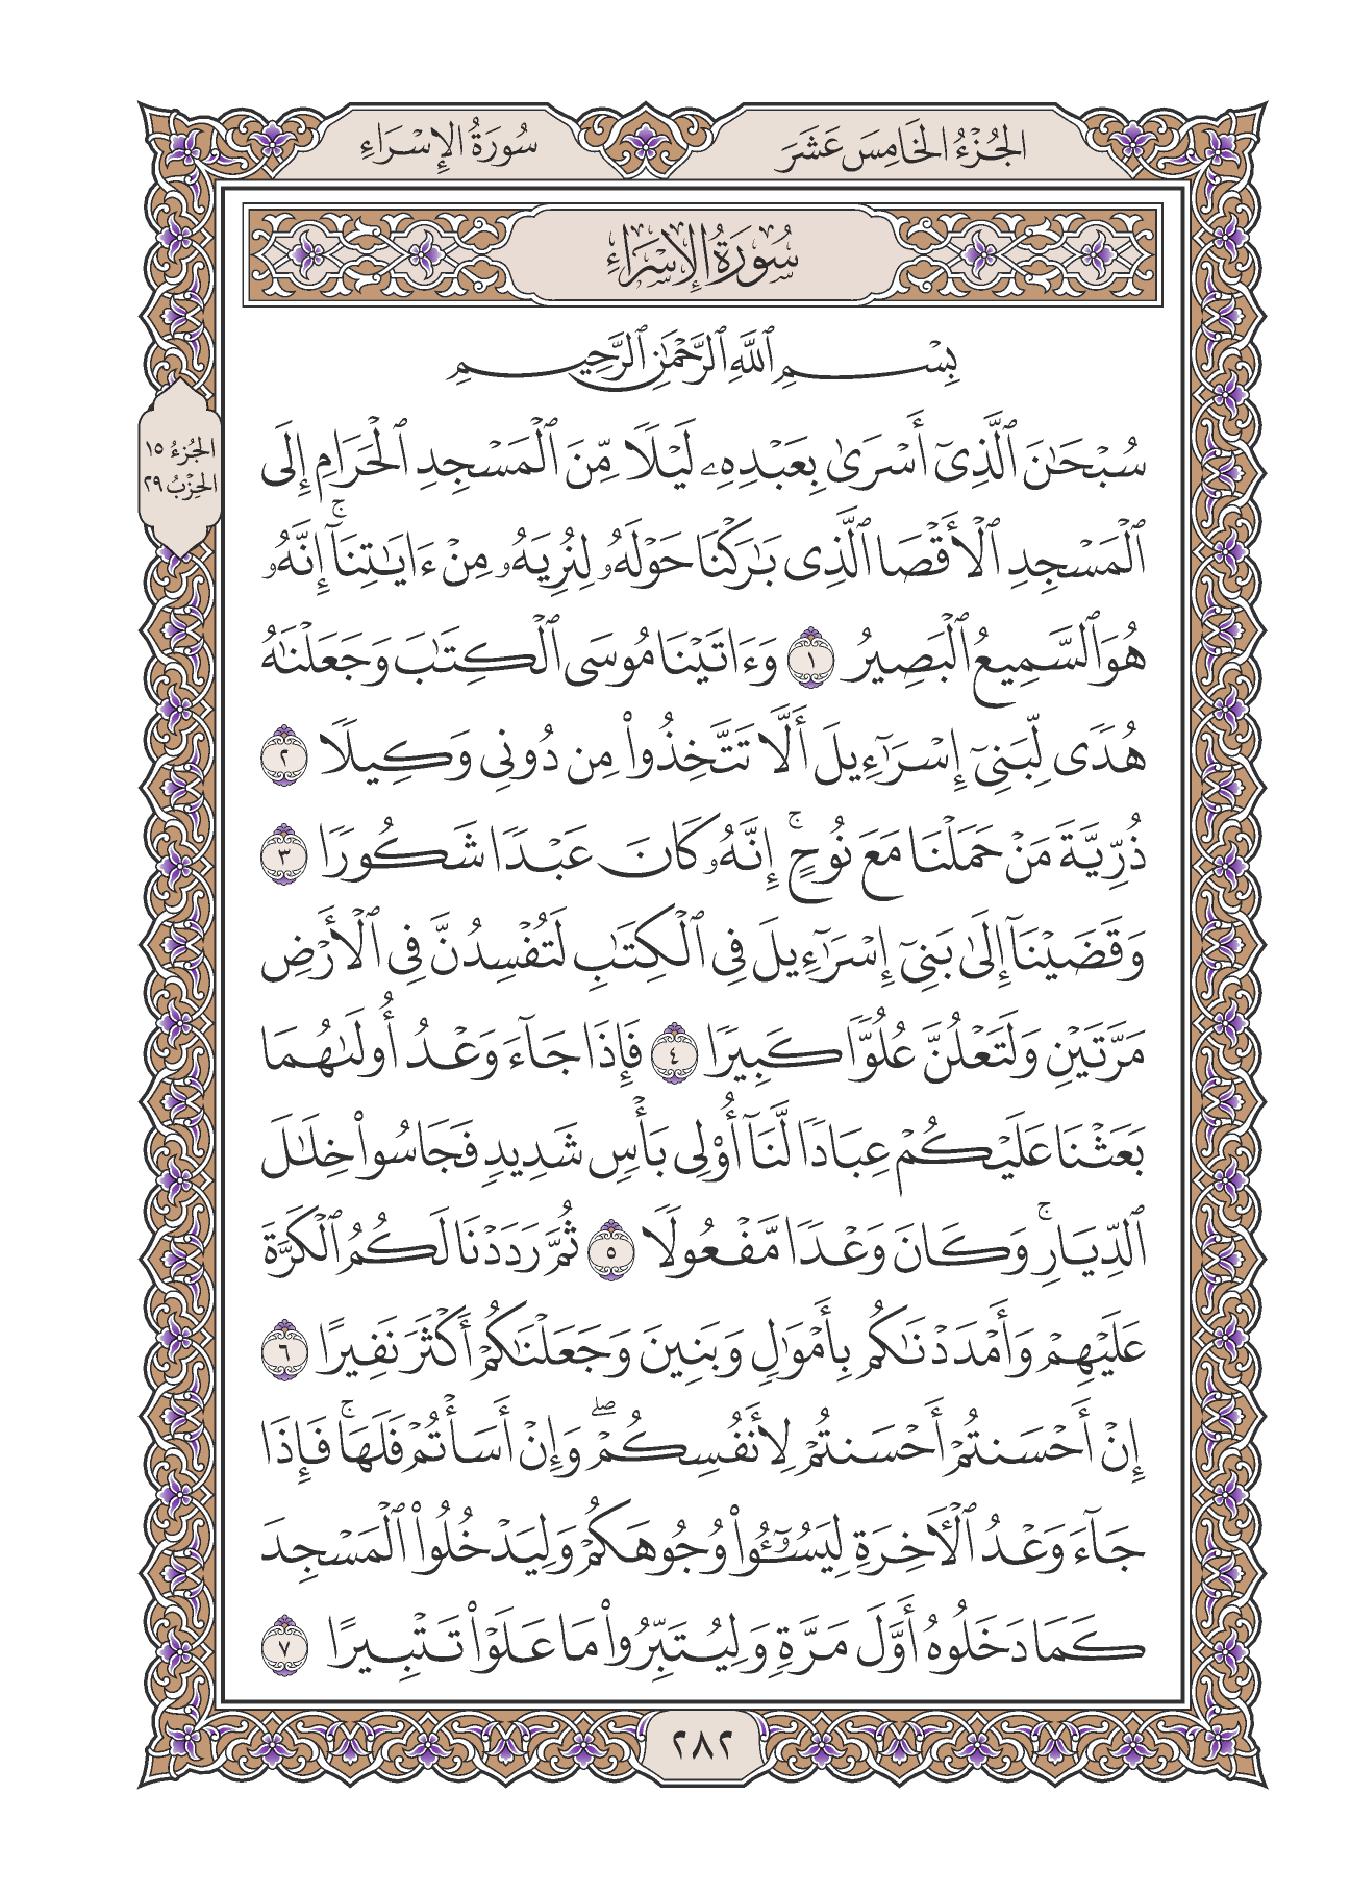 الجُزْءُ الخَامِسَ عَشَرَ
سُورَةُ الإِسْرَاءِ
سُورَةُ الإِسْرَاءِ
بِسْمِ ٱللَّهِ ٱلرَّحْمَٰنِ ٱلرَّحِيمِ
سُبْحَٰنَ ٱلَّذِىٓ أَسْرَىٰ بِعَبْدِهِۦ لَيْلًا مِّنَ ٱلْمَسْجِدِ ٱلْحَرَامِ إِلَى
ٱلْمَسْجِدِ ٱلْأَقْصَا ٱلَّذِى بَٰرَكْنَا حَوْلَهُۥ لِنُرِيَهُۥ مِنْ ءَايَٰتِنَآۚ إِنَّهُۥ
هُوَ ٱلسَّمِيعُ ٱلْبَصِيرُ ١ وَءَاتَيْنَا مُوسَى ٱلْكِتَٰبَ وَجَعَلْنَٰهُ
هُدًى لِّبَنِىٓ إِسْرَٰٓءِيلَ أَلَّا تَتَّخِذُوا۟ مِن دُونِى وَكِيلًا ٢
ذُرِّيَّةَ مَنْ حَمَلْنَا مَعَ نُوحٍۚ إِنَّهُۥ كَانَ عَبْدًا شَكُورًا ٣
وَقَضَيْنَآ إِلَىٰ بَنِىٓ إِسْرَٰٓءِيلَ فِى ٱلْكِتَٰبِ لَتُفْسِدُنَّ فِى ٱلْأَرْضِ
مَرَّتَيْنِ وَلَتَعْلُنَّ عُلُوًّا كَبِيرًا ٤ فَإِذَا جَآءَ وَعْدُ أُولَىٰهُمَا
بَعَثْنَا عَلَيْكُمْ عِبَادًا لَّنَآ أُو۟لِى بَأْسٍ شَدِيدٍ فَجَاسُوا۟ خِلَٰلَ
ٱلدِّيَارِۚ وَكَانَ وَعْدًا مَّفْعُولًا ٥ ثُمَّ رَدَدْنَا لَكُمُ ٱلْكَرَّةَ
عَلَيْهِمْ وَأَمْدَدْنَٰكُم بِأَمْوَٰلٍ وَبَنِينَ وَجَعَلْنَٰكُمْ أَكْثَرَ نَفِيرًا ٦
إِنْ أَحْسَنتُمْ أَحْسَنتُمْ لِأَنفُسِكُمْۖ وَإِنْ أَسَأْتُمْ فَلَهَاۚ فَإِذَا
جَآءَ وَعْدُ ٱلْءَاخِرَةِ لِيَسُۥٓـُٔوا۟ وُجُوهَكُمْ وَلِيَدْخُلُوا۟ ٱلْمَسْجِدَ
كَمَا دَخَلُوهُ أَوَّلَ مَرَّةٍ وَلِيُتَبِّرُوا۟ مَا عَلَوْا۟ تَتْبِيرًا ٧
الجُزءُ ١٥
الحِزْبُ ٢٩
٢٨٢